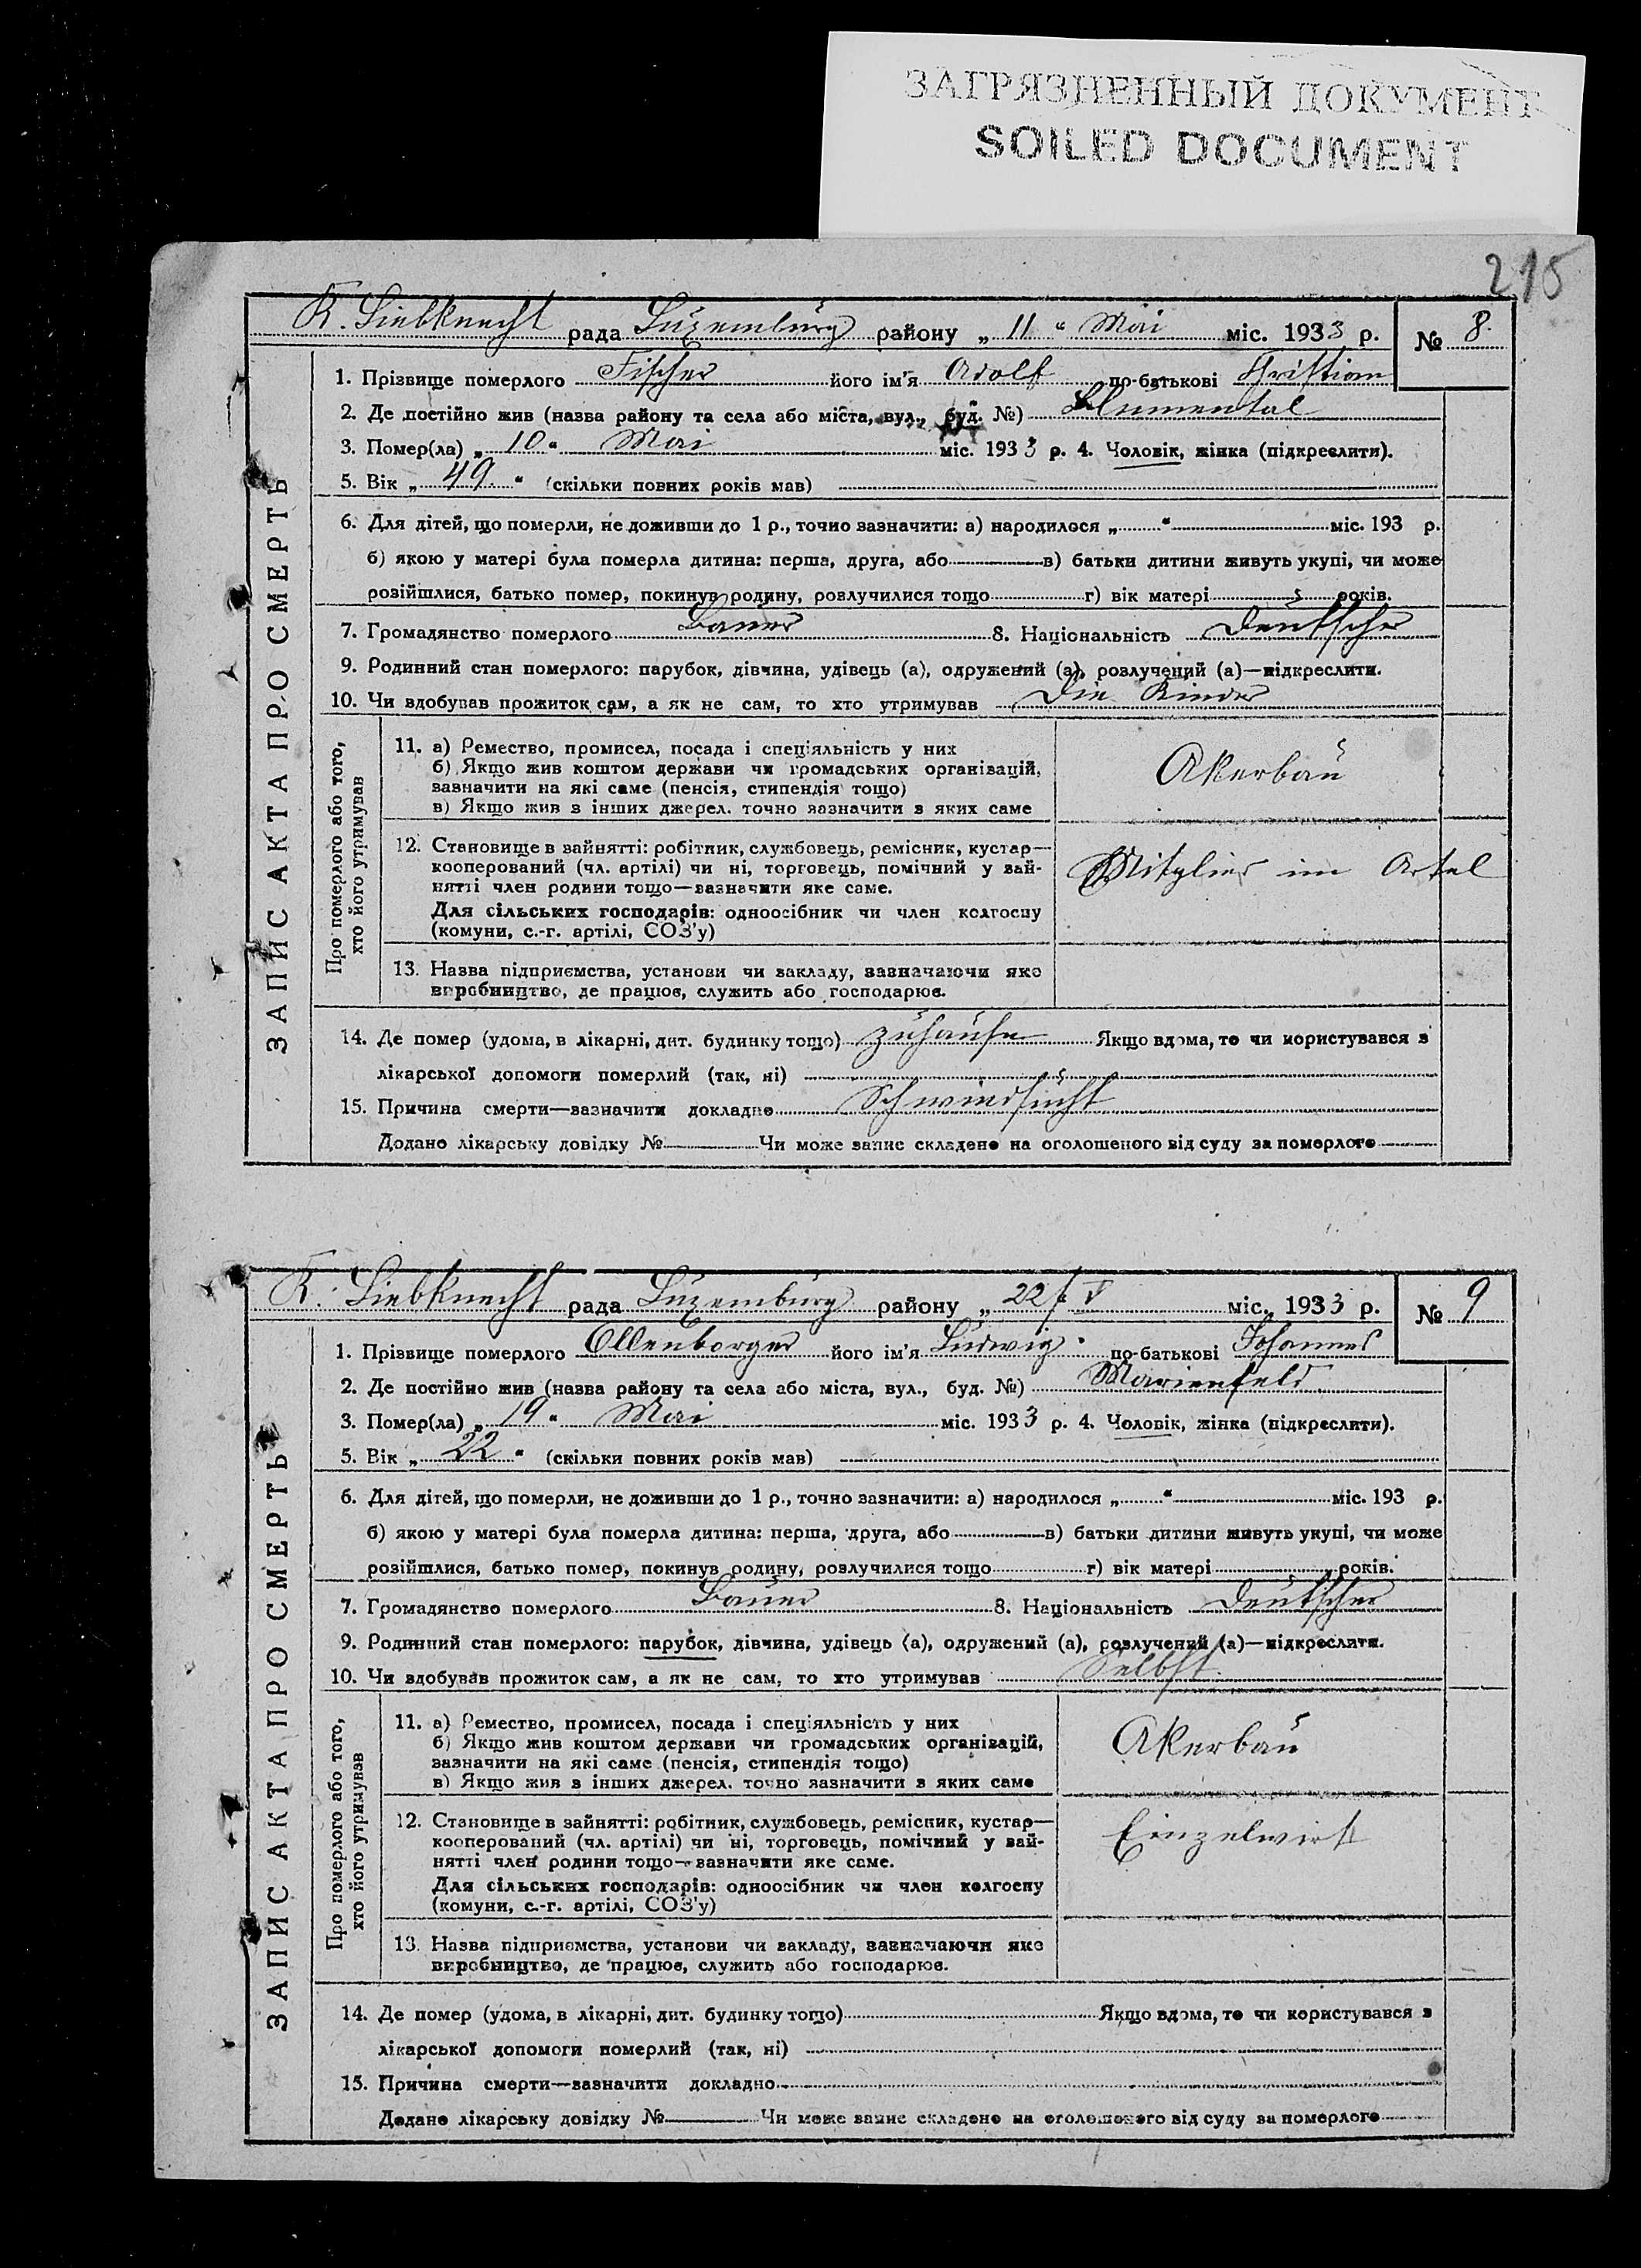 ЗАГРЯЗНЕННЫЙ ДОКУМЕНТ
SOILED DOCUMENT
215
K. Liebknecht рада Luxemburg району „ 11 “ Mai міс. 1933 р. № 8.
ЗАПИС АКТА ПРО СМЕРТЬ
1. Прізвище померлого Fischer його ім'я Adolf по-батькові Christian
2. Де постійно жив (назва району та села або міста, вул., буд. №) Blumental
3. Помер(ла) „ 10 “ Mai міс. 1933 р. 4. Чоловік, жінка (підкреслити).
5. Вік „ 49. “ (скільки повних років мав)
6. Для дітей, що померли, не доживши до 1 р., точно зазначити: а) народилося „ “ міс. 193 р.
б) якою у матері була померла дитина: перша, друга, або в) батьки дитини живуть укупі, чи може
розійшлися, батько помер, покинув родину, розлучилися тощо г) вік матері років.
7. Громадянство померлого Bauer 8. Національність Deutscher
9. Родинний стан померлого: парубок, дівчина, удівець (а), одружений (а), розлучений (а)—підкреслити.
10. Чи здобував прожиток сам, а як не сам, то хто утримував Die Kinder
Про померлого або того,
хто його утримував
11. а) Ремество, промисел, посада і спеціяльність у них
б) Якщо жив коштом держави чи громадських організацій,
зазначити на які саме (пенсія, стипендія тощо)
в) Якщо жив з інших джерел. точно зазначити з яких саме
Akerbau
12. Становище в зайнятті: робітник, службовець, ремісник, кустар—
кооперований (чл. артілі) чи ні, торговець, помічний у зай-
нятті член родини тощо—зазначити яке саме.
Для сільських господарів: одноосібник чи член колгоспу
(комуни, с.-г. артілі, СОЗ'у)
Mitglied im Artel
13. Назва підприємства, установи чи закладу, зазначаючи яке
виробництво, де працює, служить або господарює.
14. Де помер (удома, в лікарні, дит. будинку тощо) zuhause Якщо вдома, то чи користувався з
лікарської допомоги померлий (так, ні)
15. Причина смерти—зазначити докладно Schwindsucht
Додано лікарську довідку № Чи може запис складено на оголошеного від суду за померлого
K. Liebknecht рада Luxemburg району „ 22/ V міс. 1933 р. № 9
ЗАПИС АКТА ПРО СМЕРТЬ
1. Прізвище померлого Ollenborger його ім'я Ludwig по-батькові Johannes
2. Де постійно жив (назва району та села або міста, вул., буд. №) Marienfeld
3. Помер(ла) „ 19 “ Mai міс. 1933 р. 4. Чоловік, жінка (підкреслити).
5. Вік „ 22 “ (скільки повних років мав)
6. Для дітей, що померли, не доживши до 1 р., точно зазначити: а) народилося „ “ міс. 193 р.
б) якою у матері була померла дитина: перша, друга, або в) батьки дитини живуть укупі, чи може
розійшлися, батько помер, покинув родину, розлучилися тощо г) вік матері років.
7. Громадянство померлого Bauer 8. Національність Deutscher
9. Родинний стан померлого: парубок, дівчина, удівець (а), одружений (а), розлучений (а)—підкреслити.
10. Чи здобував прожиток сам, а як не сам, то хто утримував Selbst
Про померлого або того,
хто його утримував
11. а) Ремество, промисел, посада і спеціяльність у них
б) Якщо жив коштом держави чи громадських організацій,
зазначити на які саме (пенсія, стипендія тощо)
в) Якщо жив з інших джерел. точно зазначити з яких саме
Akerbau
12. Становище в зайнятті: робітник, службовець, ремісник, кустар—
кооперований (чл. артілі) чи ні, торговець, помічний у зай-
нятті член родини тощо—зазначити яке саме.
Для сільських господарів: одноосібник чи член колгоспу
(комуни, с.-г. артілі, СОЗ'у)
Einzelwirt
13. Назва підприємства, установи чи закладу, зазначаючи яке
виробництво, де працює, служить або господарює.
14. Де помер (удома, в лікарні, дит. будинку тощо) Якщо вдома, то чи користувався з
лікарської допомоги померлий (так, ні)
15. Причина смерти—зазначити докладно
Додано лікарську довідку № Чи може запис складено на оголошеного від суду за померлого